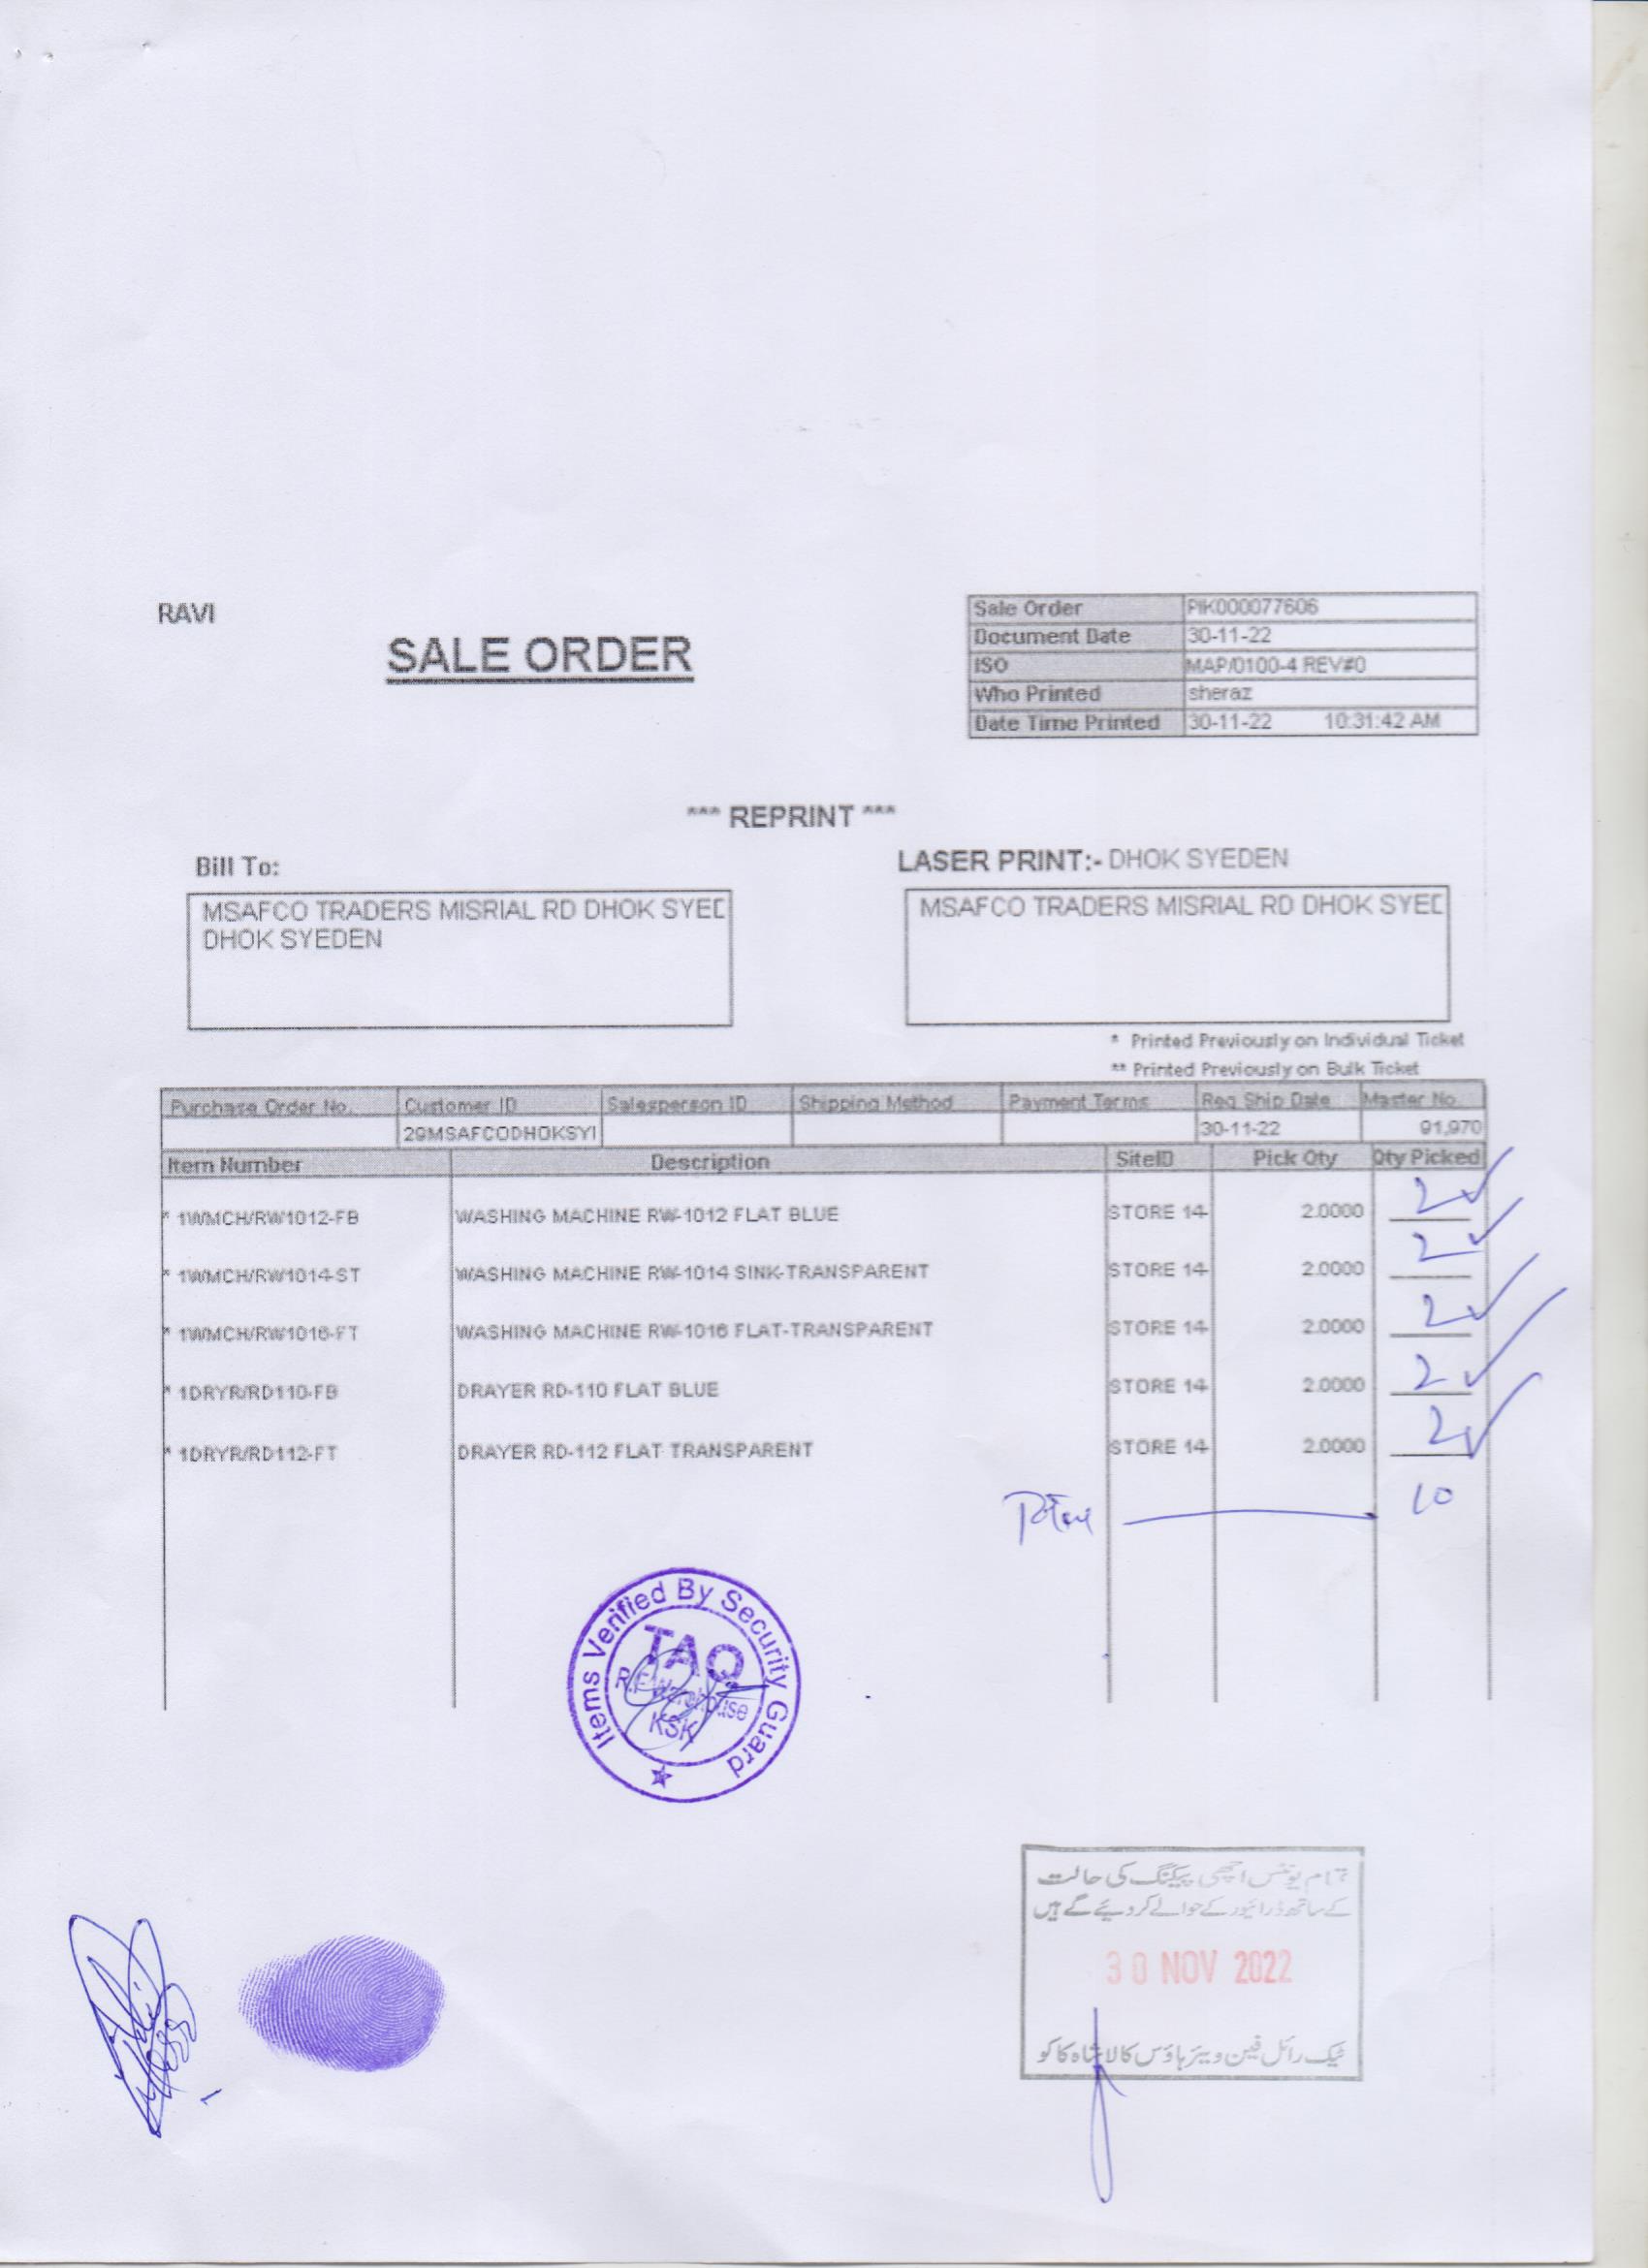 RAVI
SALE ORDER
Sale Order PIK000077606
Document Date 30-11-22
ISO MAP/0100-4 REV#0
Who Printed sheraz
Date Time Printed 30-11-22 10:31:42 AM
*** REPRINT ***
Bill To:
LASER PRINT:- DHOK SYEDEN
MSAFCO TRADERS MISRIAL RD DHOK SYED
DHOK SYEDEN
MSAFCO TRADERS MISRIAL RD DHOK SYED
* Printed Previously on Individual Ticket
** Printed Previously on Bulk Ticket
Purchase Order No. Customer ID Salesperson ID Shipping Method Payment Terms Req Ship Date Master No.
29MSAFCODHOKSYI 30-11-22 91,970
Item Number Description SiteID Pick Qty Qty Picked
* 1WMCH/RW1012-FB WASHING MACHINE RW-1012 FLAT BLUE STORE 14 2.0000 2
* 1WMCH/RW1014-ST WASHING MACHINE RW-1014 SINK-TRANSPARENT STORE 14 2.0000 2
* 1WMCH/RW1016-FT WASHING MACHINE RW-1016 FLAT-TRANSPARENT STORE 14 2.0000 2
* 1DRYR/RD110-FB DRAYER RD-110 FLAT BLUE STORE 14 2.0000 2
* 1DRYR/RD112-FT DRAYER RD-112 FLAT TRANSPARENT STORE 14 2.0000 2
Total 10
Items Verified By Security Guard
TAQ
R.F Warehouse
KSK
تمام یونٹس اچھی پیکنگ کی حالت
کے ساتھ ڈرائیور کے حوالے کر دیئے گے ہیں
30 NOV 2022
ٹیک رائل فین ویئر ہاؤس کالا شاہ کاکو